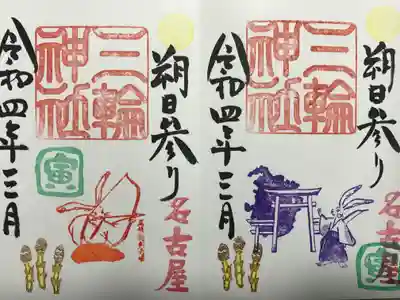 朔日参り
名古屋
寅
三輪
神社
令和四年三月
朔日参り
名古屋
三輪
神社
令和四年三月
寅